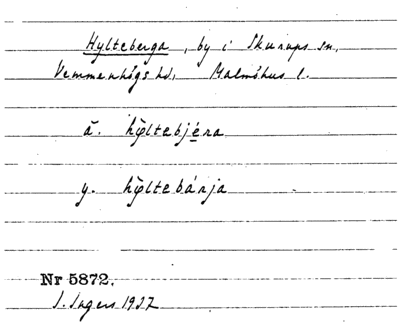 Hylteberga, by i Skurups sn,
Vemmenhögs hd, Malmöhus l.
ä. hỳltebjéra
y. hỳltebárja
Nr 5872.
I. Ingers 1937